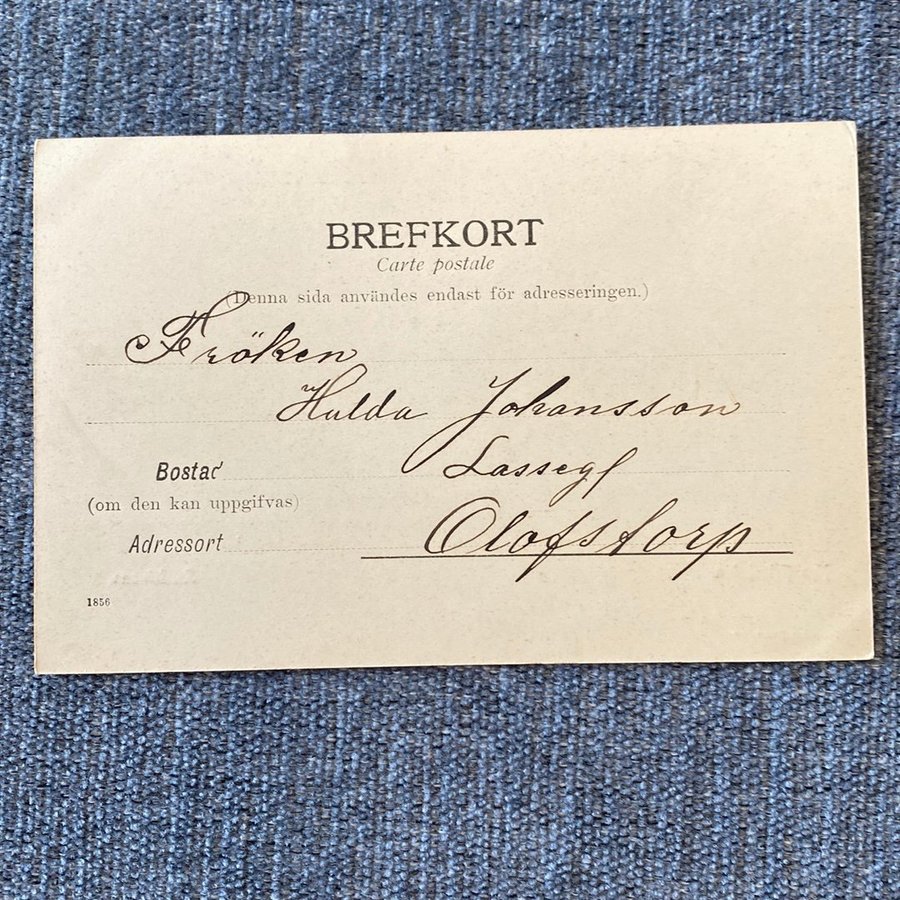 BREFKORT
Carte postale
(Denna sida användes endast för adresseringen.)
Fröken
Hulda Johansson
Bostad Lassegf
(om den kan uppgifvas)
Adressort Olofstorp
1856